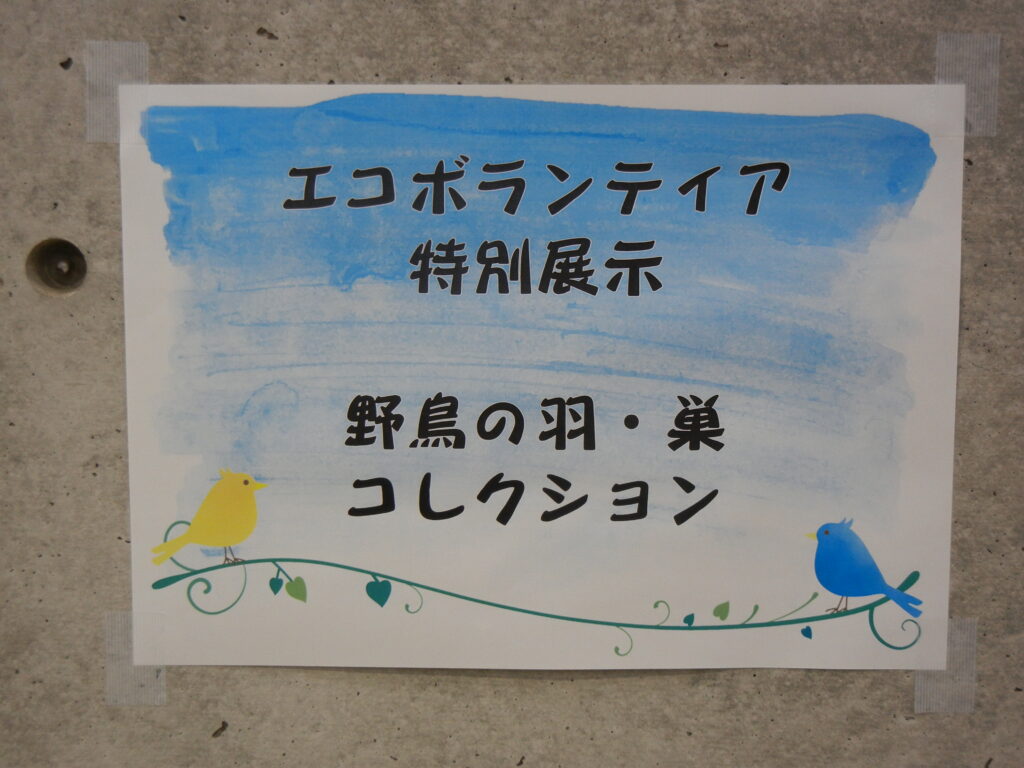 エコボランティア
特別展示
野鳥の羽・巣
コレクション